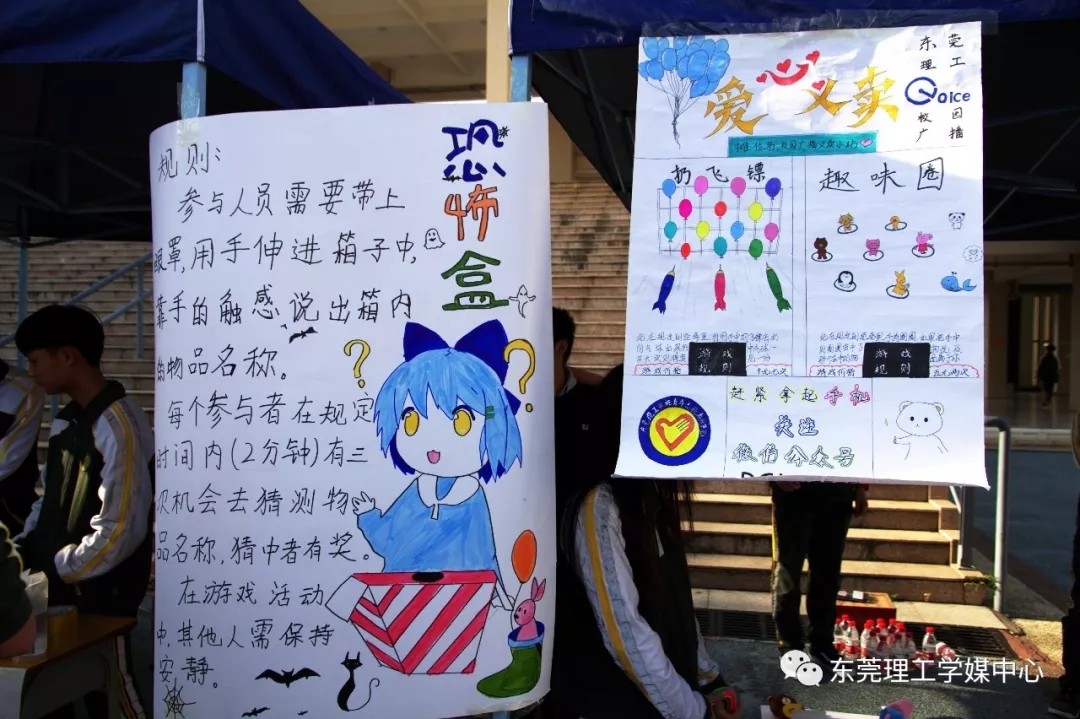 恐怖盒
规则:
参与人员需要带上
眼罩,用手伸进箱子中,
靠手的触感说出箱内
的物品名称。
每个参与者在规定
时间内(2分钟)有三
次机会去猜测物
品名称,猜中者有奖。
在游戏活动
中,其他人需保持
安静。
爱心义卖
东莞
理工
Voice
校园
广播
扔飞镖
趣味圈
游戏
规则
游戏价格
游戏
规则
游戏价格
赶紧拿起手机
关注
微信公众号
东莞理工学媒中心